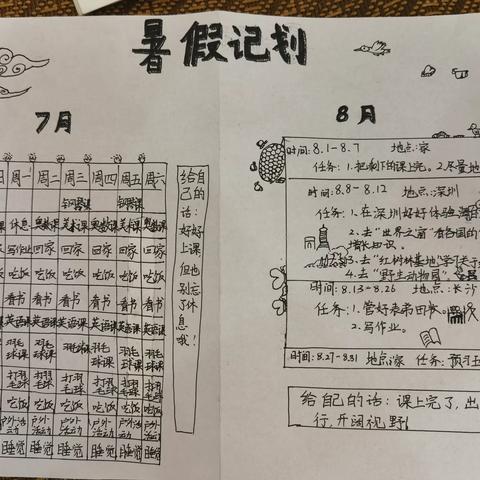 暑假记划
7月
日 周一 周二 周三 周四 周五 周六
钢琴课 钢琴课
课 休息 奥数课 美术课 奥数课 美术课 奥数课
家 写作业 回家 回家 回家 回家 回家
饭 吃饭 吃饭 吃饭 吃饭 吃饭 吃饭
看书 看书 看书 看书 看书 看书
课 英语课 英语课 英语课 英语课 英语课 英语课
羽毛球课 羽毛球课 羽毛球课 羽毛球课
打羽毛球 打羽毛球 打羽毛球 打羽毛球
吃饭 吃饭 吃饭 吃饭 吃饭 吃饭
户外活动 户外活动 户外活动 户外活动 户外活动 户外活动
睡觉 睡觉 睡觉 睡觉 睡觉 睡觉
给自己的话:好好上课但也别忘了休息哦!
8月
时间:8.1-8.7 地点:家
任务:1.把剩下的课上完。2.尽量地
时间:8.8-8.12 地点:深圳
任务:1.在深圳好好体验
2.去“世界之窗”看各国的
增长知识。
3.去“红树林基地”学习关于
4.去“野生动物园”
时间:8.13-8.26 地点:长沙
任务:1.管好表弟
2.写作业。
时间:8.27-8.31 地点:家 任务:预习五
给自己的话:课上完了,出
行,开阔视野!